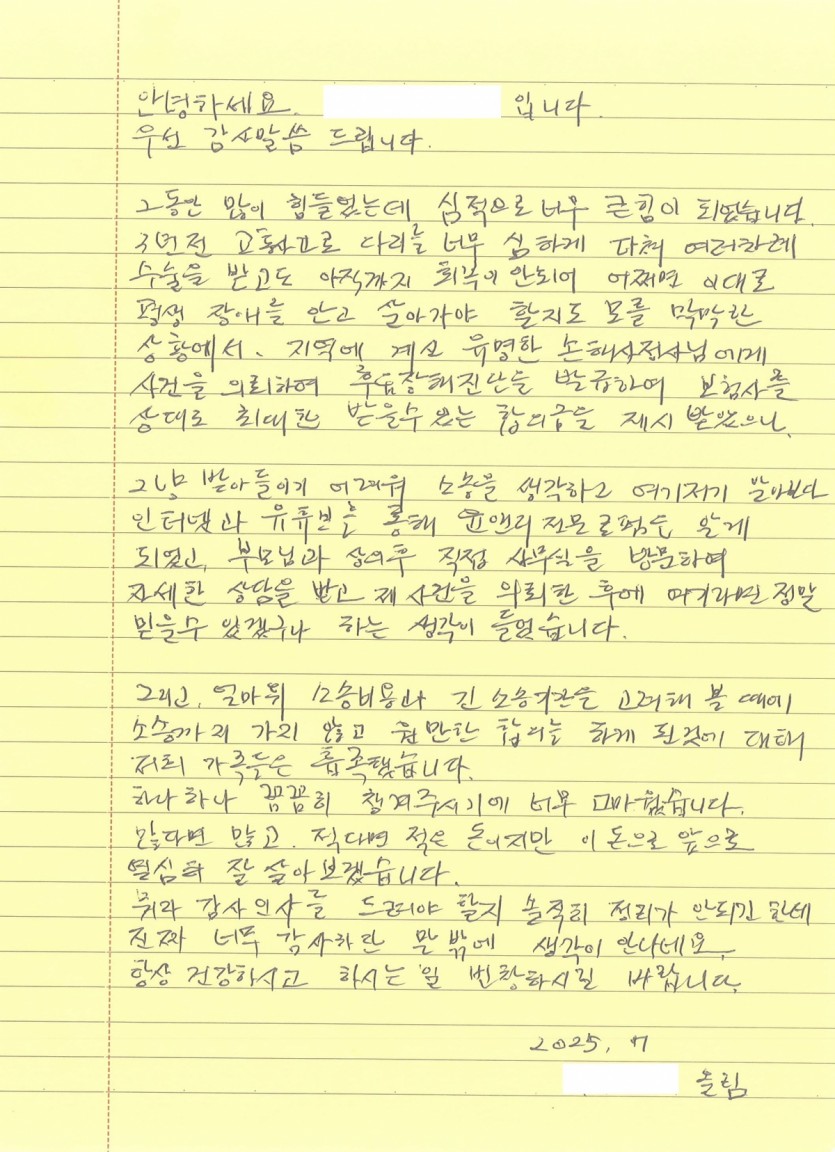 안녕하세요. 입니다.
우선 감사말씀 드립니다.
그동안 많이 힘들었는데 심적으로 너무 큰힘이 되었습니다.
3년전 교통사고로 다리를 너무 심하게 다쳐 여러차례
수술을 받고도 아직까지 회복이 안되어 어쩌면 이대로
평생 장애를 안고 살아가야 할지도 모를 막막한
상황에서. 지역에 계신 유명한 손해사정사님에게
사건을 의뢰하여 후유장해진단을 발급하여 보험사를
상대로 최대한 받을수 있는 합의금을 제시 받았으나.
그냥 받아들이기 어려워 소송을 생각하고 여기저기 알아보다
인터넷과 유튜브를 통해 윤앤리 전문로펌을 알게
되었고, 부모님과 상의후 직접 사무실을 방문하여
자세한 상담을 받고 제 사건을 의뢰한 후에 여기라면 정말
믿을수 있겠구나 하는 생각이 들었습니다.
그리고, 얼마뒤 소송비용과 긴 소송기간을 고려해 볼 때에
소송까지 가지 않고 원만한 합의를 하게 된것에 대해
저희 가족들은 흡족했습니다.
하나하나 꼼꼼히 챙겨주시기에 너무 고마웠습니다.
많다면 많고. 적다면 적은 돈이지만 이 돈으로 앞으로
열심히 잘 살아보겠습니다.
뭐라 감사인사를 드려야 할지 솔직히 정리가 안되긴 한데
진짜 너무 감사하단 말 밖에 생각이 안나네요.
항상 건강하시고 하시는 일 번창하시길 바랍니다.
2025. 7
올림